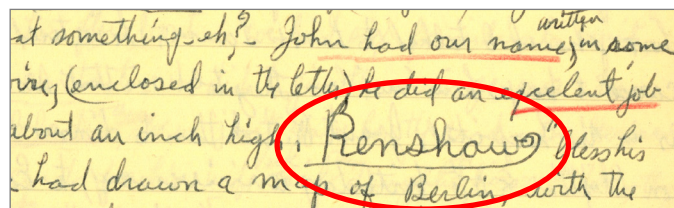 at something-eh?- John had our name, written in some
(enclosed in the letter) he did an excelent job
about an inch high. Renshaw "bless his
had drawn a map of Berlin, with the